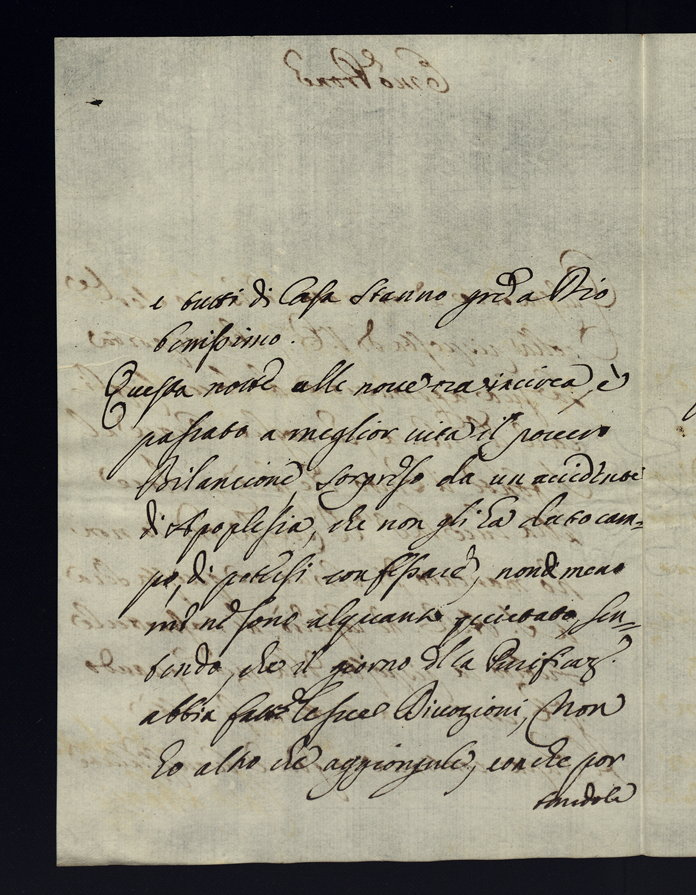 e tutti di Casa stanno gra a Dio
benissimo.
Questa notte alle nove ora incirca, è
passato a meglior vita il povero
Bilancione, sorpreso da un accidente
di Apoplesia, che non gli ha dato cam=
po, di potersi confessare, nondimeno
me ne sono alquanto quietato, sen=
tendo, che il giorno della Purificaz.
abbia fatto le sue Divozioni, Non
ho altro che aggiongerle, con che por
tandole